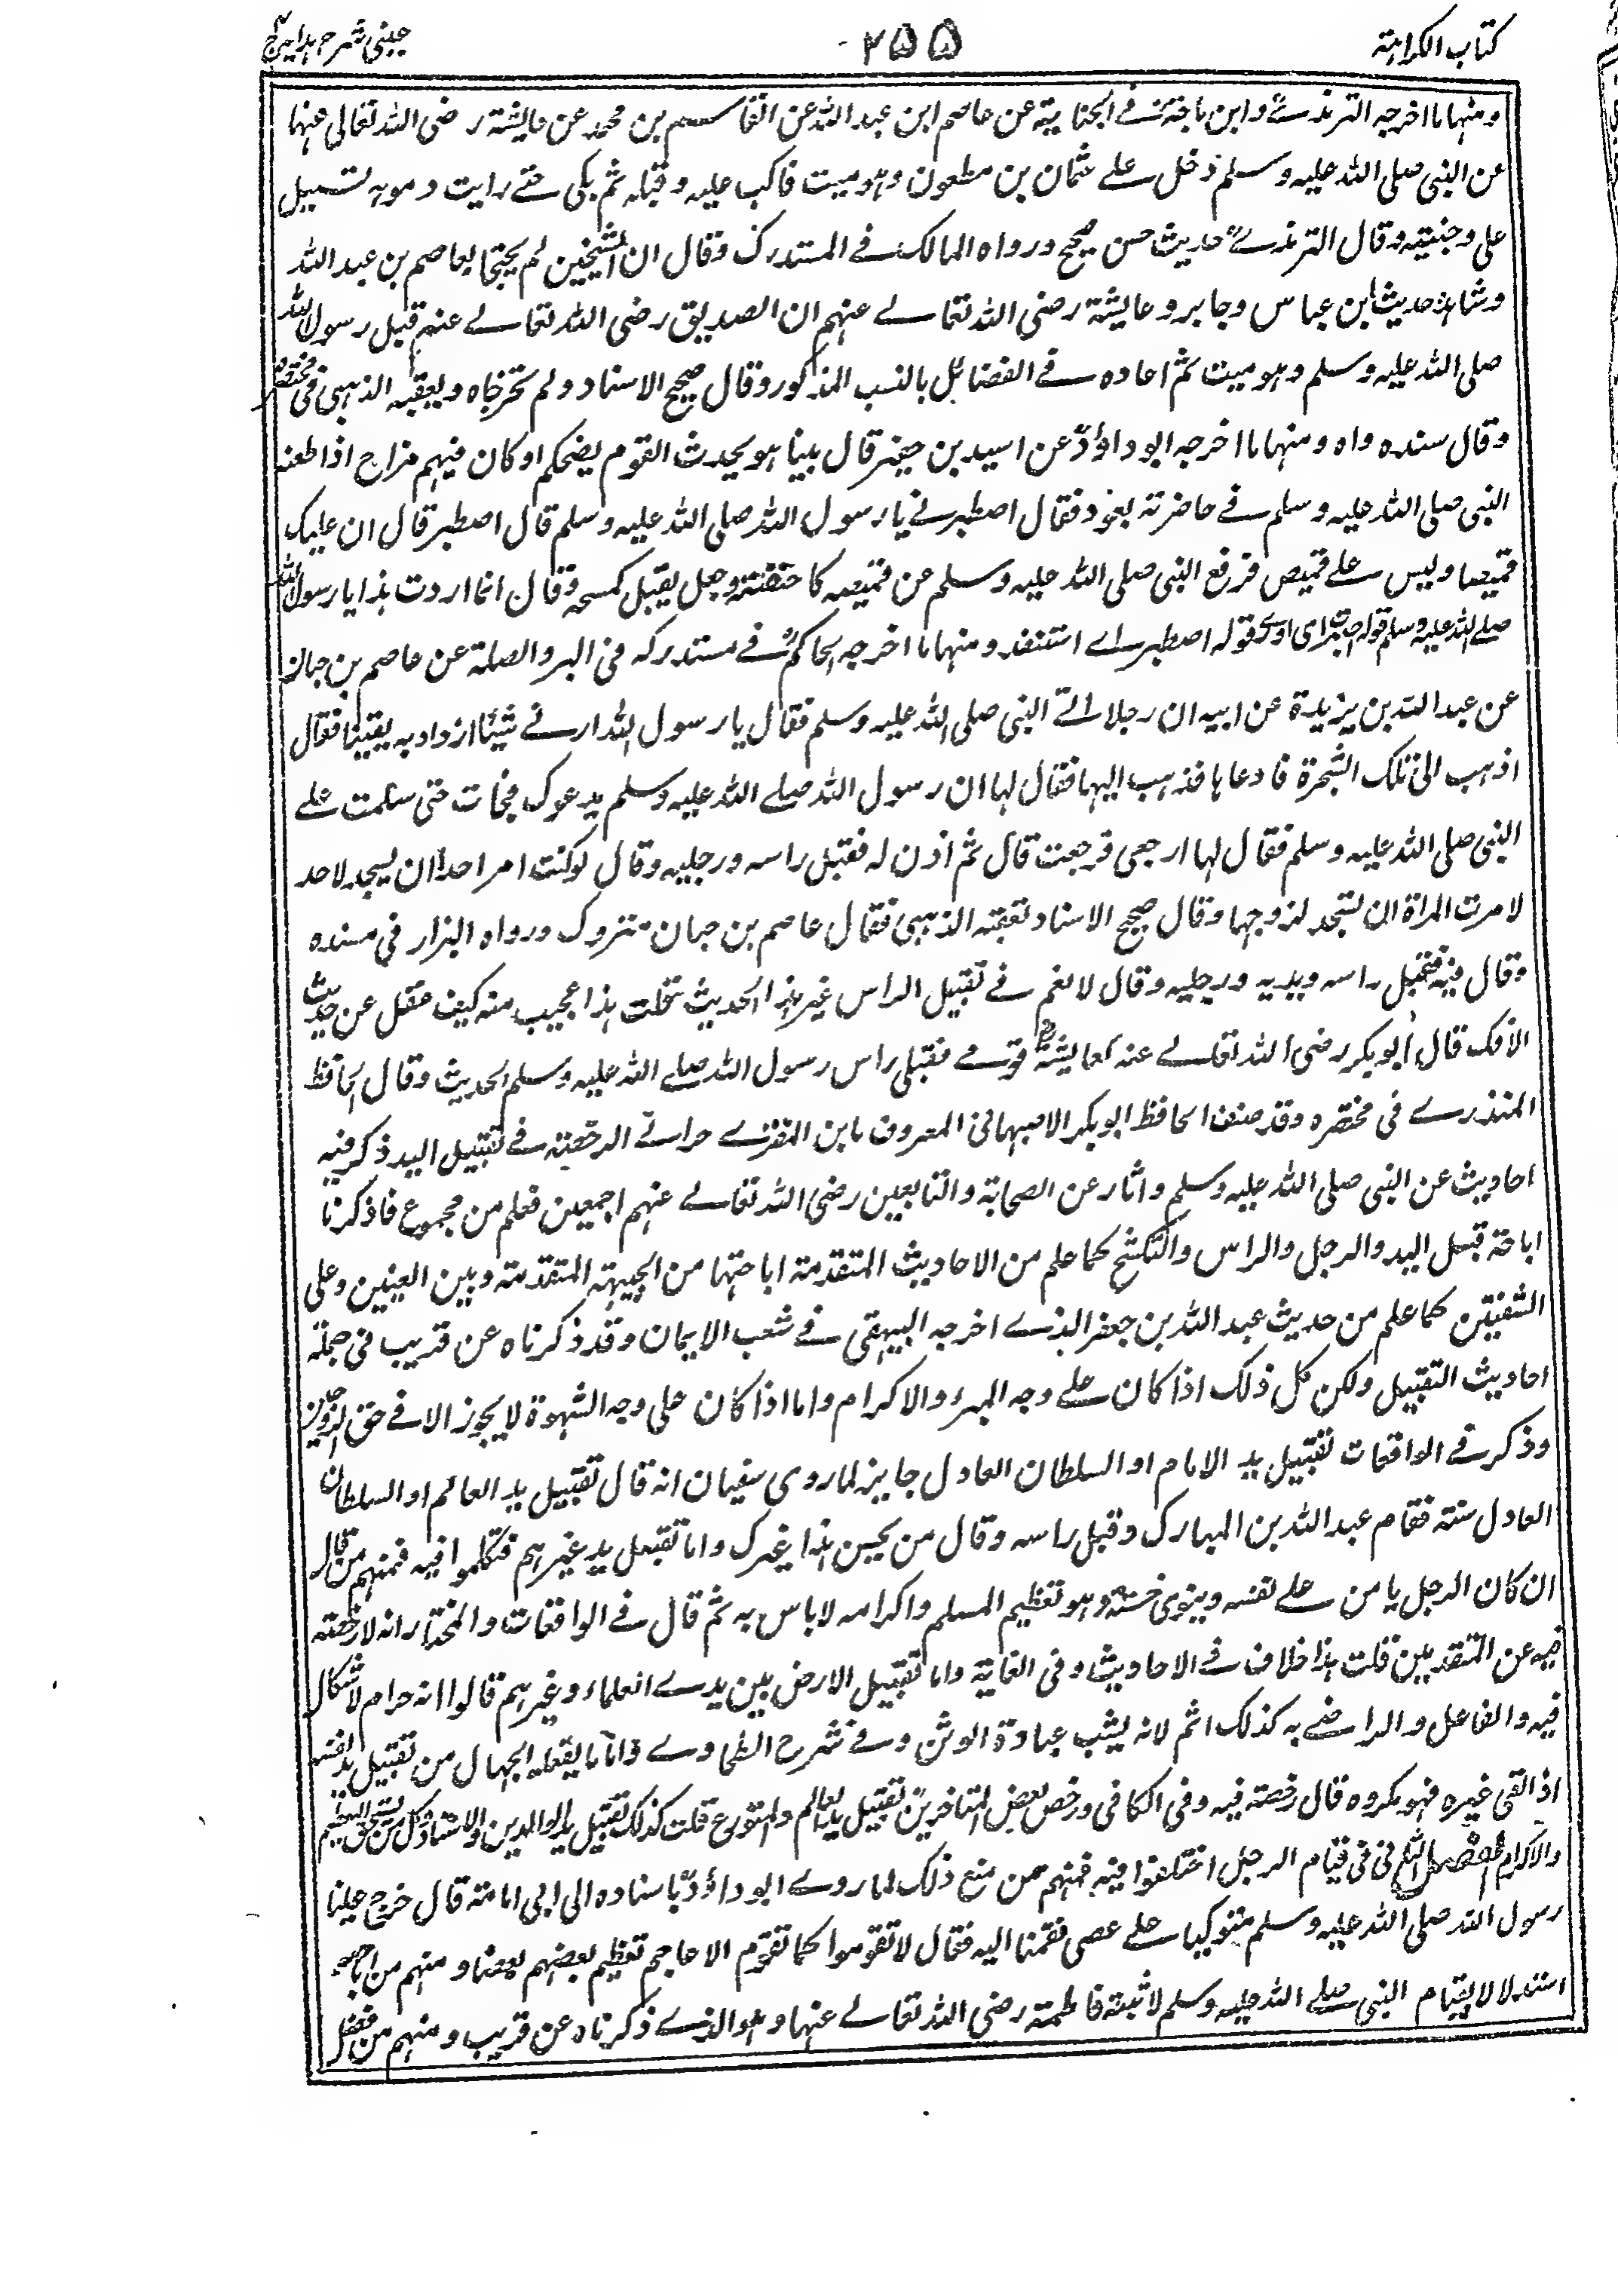 كتاب الكراهته
٢٥٥
عيني شرح هدايه ج ٤
ومنها ما اخرجه الترمذي وابن ماجة في الجنايئة عن عاصم ابن عبد الله عن القاسم بن محمد عن عايشة رضى الله تعالى عنها
عن النبى صلى الله عليه وسلم دخل على عثمان بن مطعون وهو ميت فاكب عليه وقبله ثم بكى حتے رايت دموعه تسييل
على وجنيتيه وقال الترمذي حديث حسن صحيح ورواه المالك في المستدرك وقال ان الشيخين لم يحتجا بعاصم بن عبد الله
وشاهده حديث ابن عباس وجابر وعايشة رضى الله تعالى عنهم ان الصديق رضى الله تعالى عنه قبل رسول الله
صلى الله عليه وسلم وهو ميت ثم اعاده في الفضائل بالنسب المذكور وقال صحيح الاسناد ولم تخرجاه ويعقبه الذهبى فى مختصره
وقال سنده واه ومنها ما اخرجه ابو داؤد عن اسيد بن حيضر قال بينا هو يحدث القوم يضحكم او كان فيهم مزاح اذا طعنه
النبى صلى الله عليه وسلم في خاضرته بعود فقال اصطبرني يا رسول الله صلى الله عليه وسلم قال اصطبر قال ان عليك
قميصا وليس على قميص فرفع النبى صلى الله عليه وسلم عن قميصه كاحتضنه وجعل يقبل كمسحه وقال انما اردت هذا يا رسول الله
صلے الله عليه وسلم قوله اصبرنى اى اوسى وقوله اصطبر اے استنفد ومنها ما اخرجه الحاكم في مستدركه فى البر والصلة عن عاصم بن حبان
عن عبد الله بن يزيدة عن ابيه ان رجلا اتى النبى صلى الله عليه وسلم فقال يا رسول الله ارنى شيئا ازداد به يقينا فقال
اذهب الى تلك الشجرة فادعاها فذهب اليها فقال لها ان رسول الله صلے الله عليه وسلم يدعوك فجات حتى سلمت على
النبى صلى الله عليه وسلم فقال لها ارجعى فرجعت قال ثم اذن له فقبل راسه ورجليه وقال لو كنت امر احدا ان يسجد لاحد
لامرت المراة ان تسجد لزوجها وقال صحيح الاسناد تعقبه الذهبى فقال عاصم بن حبان متروك ورواه البزار فى مسنده
وقال فيه فقبل راسه ويديه ورجليه وقال لانعم في تقبيل الراس غير هذا الحديث قلت هذا عجيب منه كيف عقل عن حديث
الافك قال ابو بكر رضى الله تعالى عنه لعايشة قومى فقبلى راس رسول الله صلے الله عليه وسلم الحديث وقال الحافظ
المنذرے فى مختصره وقد صنف الحافظ ابو بكر الاصبهانى المعروف بابن المقرے جزائے الرخصة في تقبيل اليد ذكر فيه
احاديث عن النبى صلى الله عليه وسلم واثار عن الصحابة والتابعين رضى الله تعالى عنهم اجمعين فعلم من مجموع ماذكرنا
اباحة قبل اليد والرجل والراس والكشح كما علم من الاحاديث المتقدمة اباحتها من الجبهة المتقدمة وبين العينين وعلى
الشفتين كما علم من حديث عبد الله بن جعفر الذے اخرجه البيهقى في شعب الايمان وقد ذكرناه عن قريب فى جملة
احاديث التقبيل ولكن كل ذلك اذا كان على وجه المبرة والاكرام واما اذا كان على وجه الشهوة لا يجوز الا في حق الزوجين
وذكر في الواقعات تقبيل يد الامام او السلطان العادل جايز لما روى سفيان انه قال تقبيل يد العالم او السلطان
العادل سنة فقام عبد الله بن المبارك وقبل راسه وقال من يحسن هذا غيرك واما تقبيل يد غيرهم فتكلموا فيه فمنهم من قال
ان كان الرجل يامن على نفسه وينوى خسنة وهو تعظيم المسلم واكرامه لاباس به ثم قال في الواقعات والمختار انه لا رخصته
فيه عن المتقدمين قلت هذا خلاف في الاحاديث وفى الغاية واما تقبيل الارض بين يدے العلماء وغيرهم قالوا انه حرام لاشكال
فيه والفاعل والراضے به كذلك اثم لانه يشبه عبادة الوثن وفى شرح الطحاوے واما ما يفعله الجهال من تقبيل يد نفسه
اذا لقى غيره فهو مكروه قال رخصته فيه وفى الكافى ورخص بعض المتاخرين تقبيل يد العالم والمتورع قلت كذلك تقبيل يد الوالدين والاستاذ وكل من يستحق التعظيم
والاكرام الفصل الثانى فى قيام الرجل اختلفوا فيه فمنهم من منع ذلك لما روے ابو داؤد باسناده الى ابى امامة قال خرج علينا
رسول الله صلى الله عليه وسلم متوكيا على عصى فقمنا اليه فقال لا تقوموا كما تقوم الاعاجم تعظيم بعضهم بعضا ومنهم من اباحه
استدلالا بقيام النبى صلے الله عليه وسلم لابنته فاطمة رضى الله تعالى عنها وهو الذے ذكرناه عن قريب ومنهم من فصل